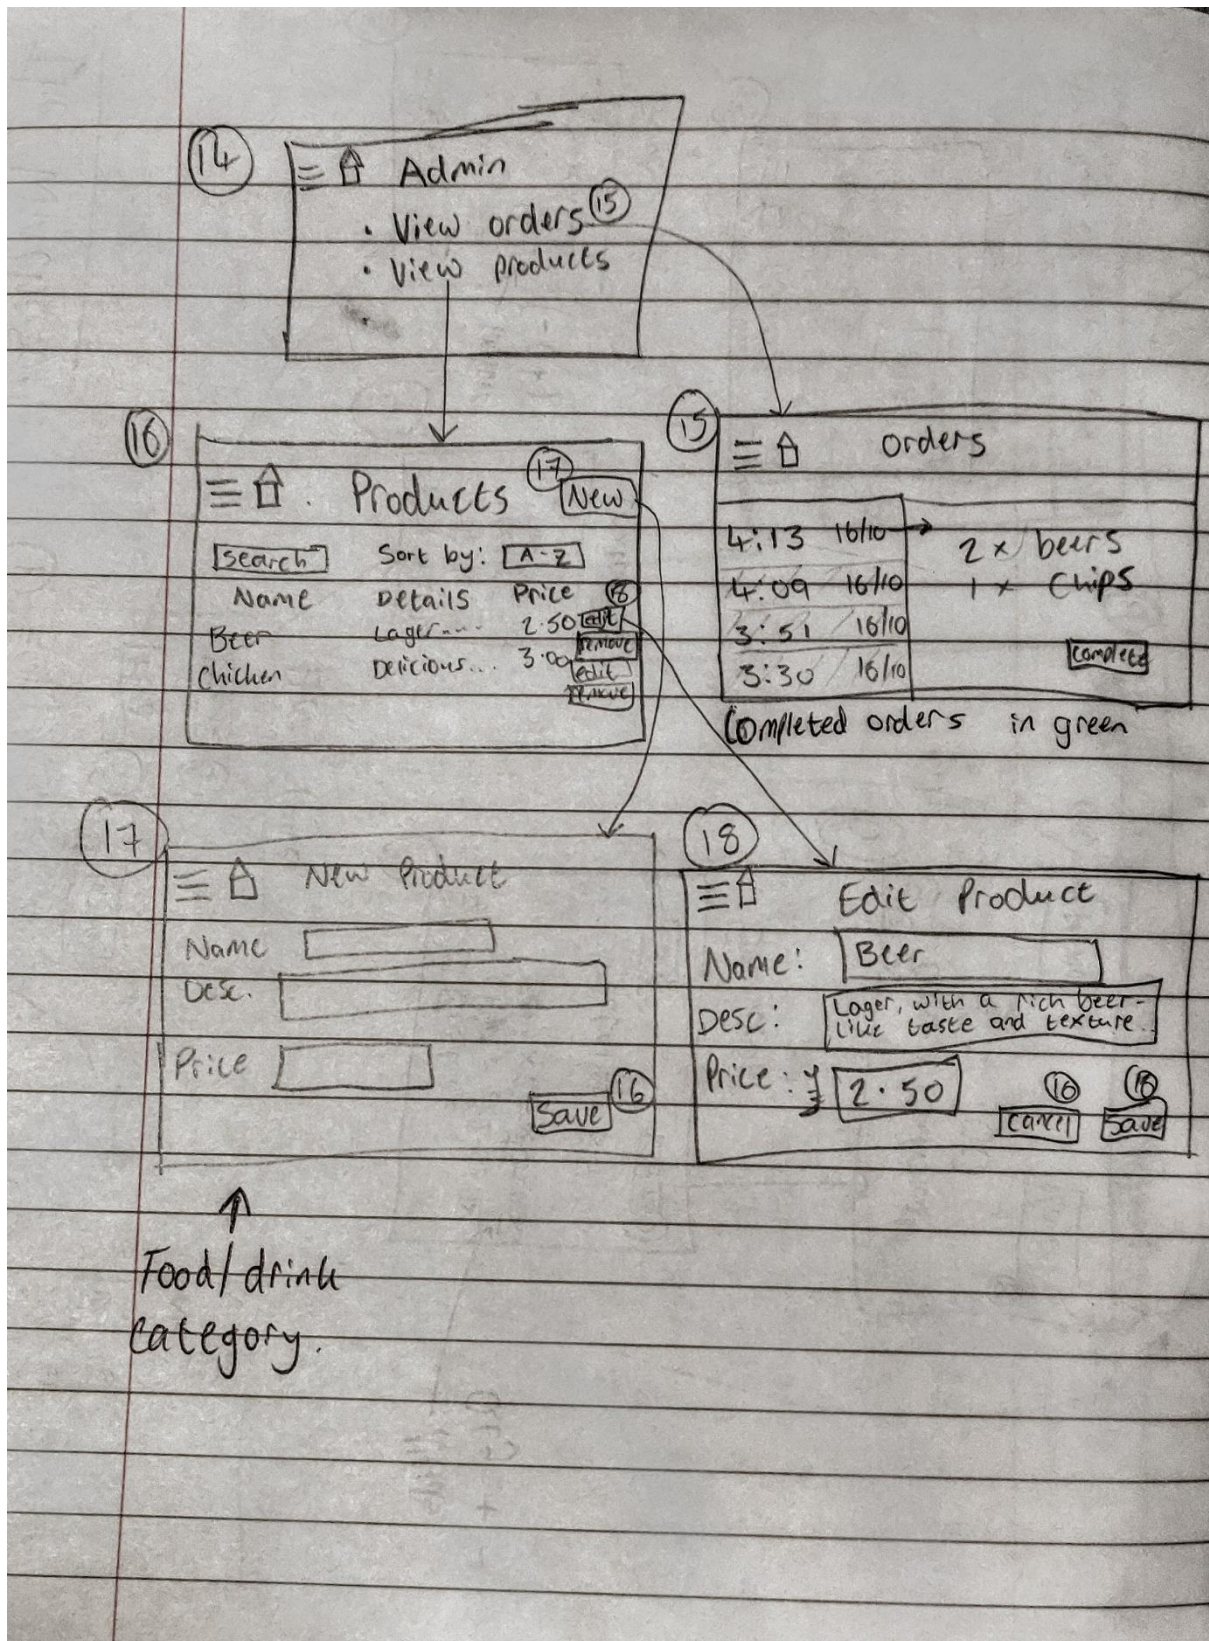 14
Admin
• View orders 15
• View products
16
Products 17 New
Search Sort by: A-Z
Name Details Price 18
Beer Lager---- 2.50 edit
remove
Chicken Delicious... 3.00 edit
remove
15
Orders
4:13 16/10 → 2 x beers
4:09 16/10 1 x Chips
3:51 16/10
3:30 16/10
Complete
Completed orders in green
17
New Product
Name
Desc.
Price
Save 16
18
Edit Product
Name: Beer
Desc: Lager, with a rich beer-
like taste and texture..
Price: 2.50
16
Cancel Save
Food/drink
category.